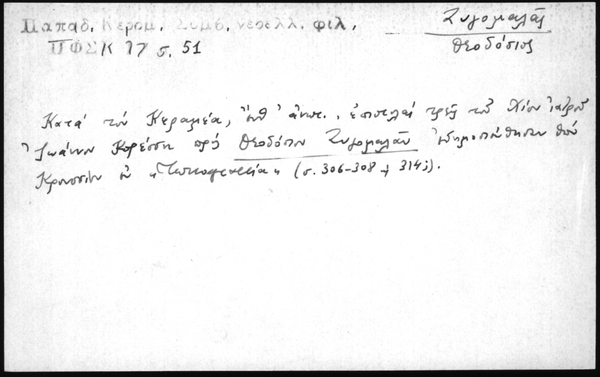 Παπαδ. Κεραμ. Συμβ. νεοελλ. φιλ.
ΠΦΣΚ 17 σ. 51
Ζυγομαλᾶς
Θεοδόσιος
Κατά τόν Κεραμέα, ἔνθ' ἀνωτ. ἐπιστολαί τρεῖς τοῦ Χίου ἰατροῦ
Ἰωάννου Κορέση πρός Θεοδόσιον Ζυγομαλᾶν ἐδημοσιεύθησαν ὑπό
Κρουσίου ἐν "Turcograecia" (σ. 306-308 + 314).